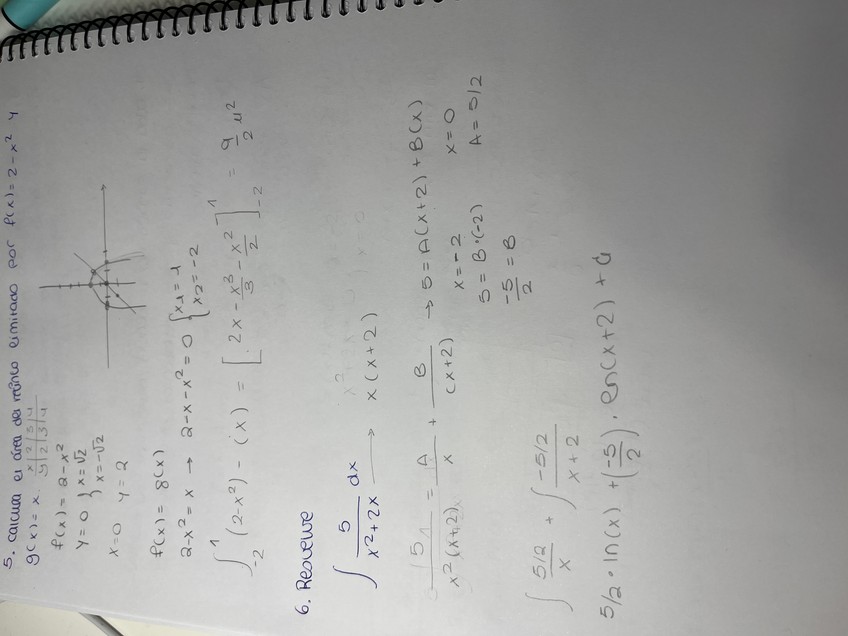 5. Calcula el área del recinto limitado por f(x) = 2 - x² y
g(x) = x.
x | 2 | 3 | 4
y | 2 | 3 | 4
f(x) = 2 - x²
y = 0 { x = √2
x = -√2
x = 0 y = 2
f(x) = g(x)
2 - x² = x → 2 - x - x² = 0 { x₁ = 1
x₂ = -2
∫₋₂¹ (2 - x²) - (x) = [2x - x³/3 - x²/2]₋₂¹ = 9/2 u²
6. Resuelve
∫ 5/(x² + 2x) dx → x(x + 2)
5/(x²(x+2)) = A/x + B/(x+2) → 5 = A(x+2) + B(x)
x = -2 x = 0
5 = B·(-2) A = 5/2
-5/2 = B
∫ (5/2)/x + ∫ (-5/2)/(x+2)
5/2 · ln(x) + (-5/2) · ln(x+2) + C